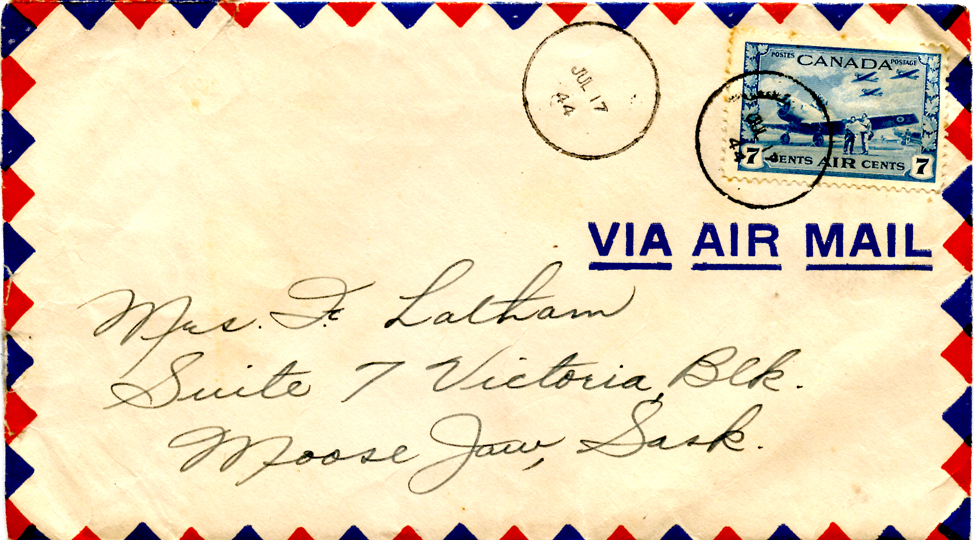 JUL 17
44
POSTES CANADA POSTAGE
JUL 17
44
7 CENTS AIR CENTS 7
VIA AIR MAIL
Mrs. F. Latham
Suite 7 Victoria Blk.
Moose Jaw, Sask.